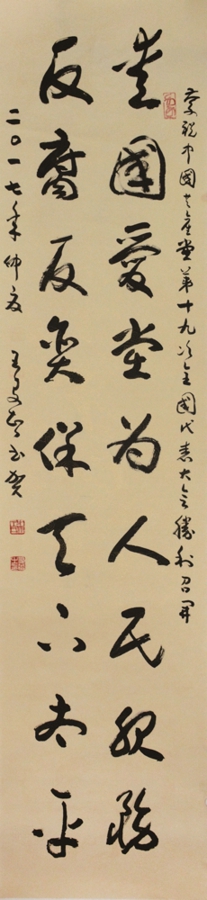 慶祝中國共产党第十九次全國代表大会勝利召開
爱國愛党为人民服務
反腐反贪保天下太平
二〇一七年仲夏 王书贺